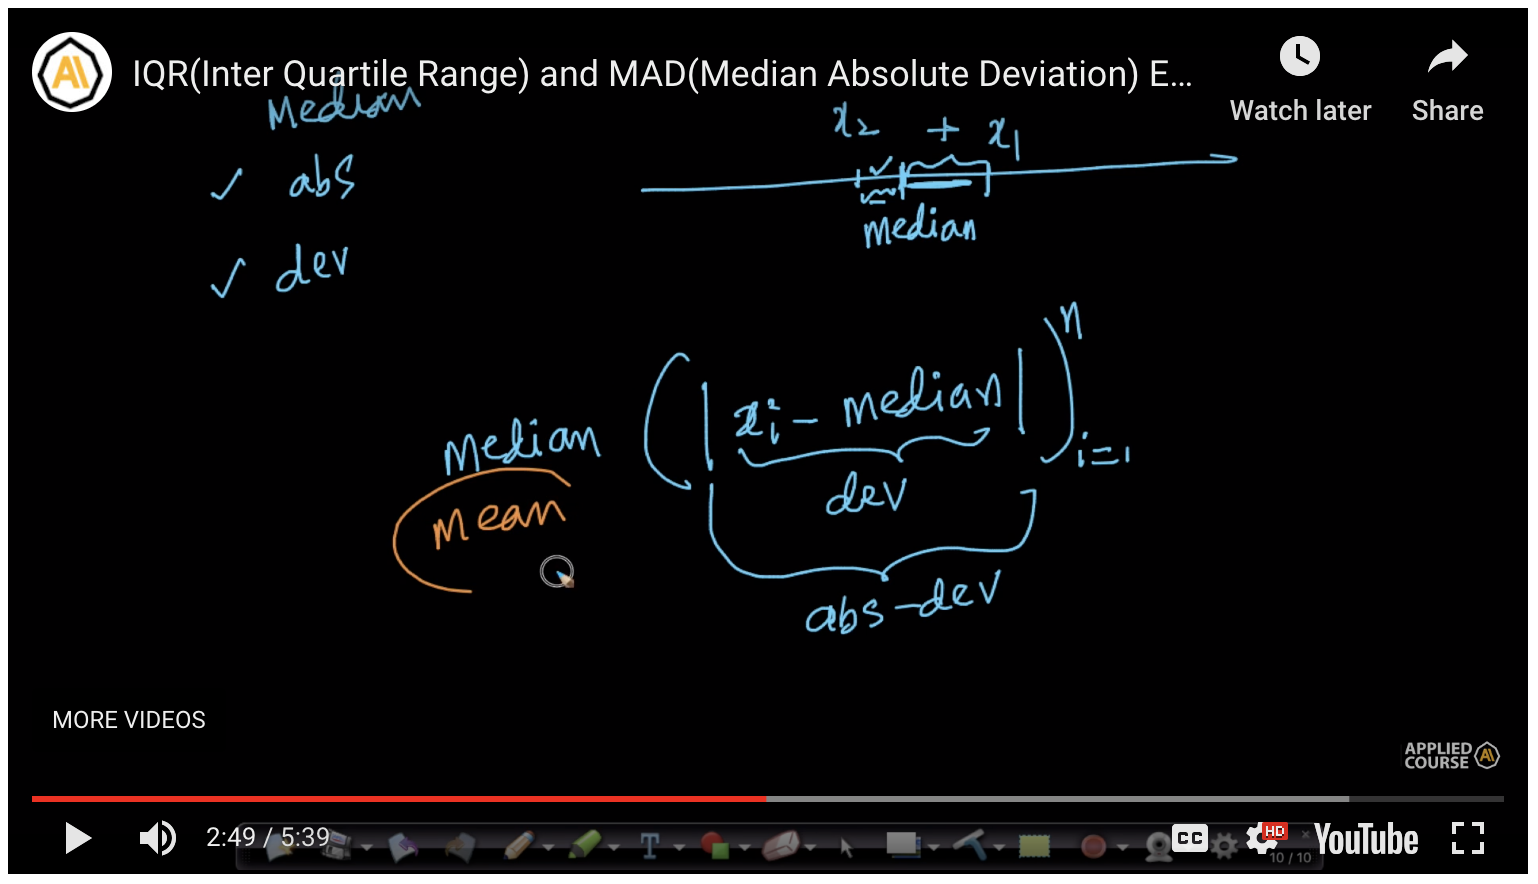 IQR(Inter Quartile Range) and MAD(Median Absolute Deviation) E...
Watch later
Share
Median
✓ abs
✓ dev
x₂ + x₁
✓
median
Median ( | xᵢ - median | )ⁿᵢ₌₁
mean
dev
abs-dev
MORE VIDEOS
APPLIED
COURSE
2:49 / 5:39
T
CC
HD
YouTube
10 / 10